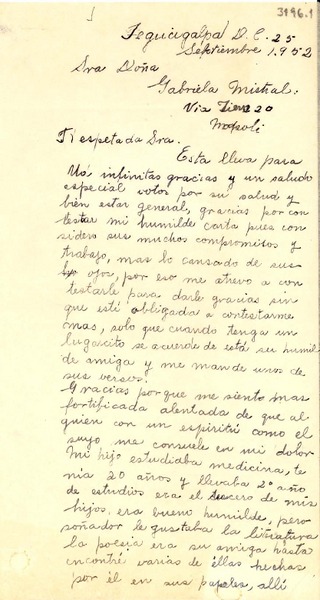 3196.1
Tegucigalpa D. C. 25
Septiembre 1.952
Sra Doña
Gabriela Mistral:
Via 20
Napoli
Respetada Sra.
Esta lleva para
Ud infinitas gracias y un saludo
especial votos por su salud y
bien estar general, gracias por con
testar mi humilde carta pues con
sidero sus muchos compromitos y
trabajo, mas lo cansado de sus
ojos, por eso me atrevo a con
testarle para darle gracias sin
que esté obligada a contestarme
mas, solo que cuando tenga un
lugarcito se acuerde de está su humil
de amiga y me mande unos de
sus versos.
Gracias porque me siento mas
fortificada alentada de que al
guien con un espiritú como el
suyo me consuele en mi dolor
Mi hijo estudiaba medicina, te
nia 20 años y llevaba 2º año
de estudios era el de mis
hijos, era bueno humilde, pero
soñador le gustaba la literatura
la poesia era su amiga hasta
encontré varias de éllas hechas
por él en sus papeles, allí